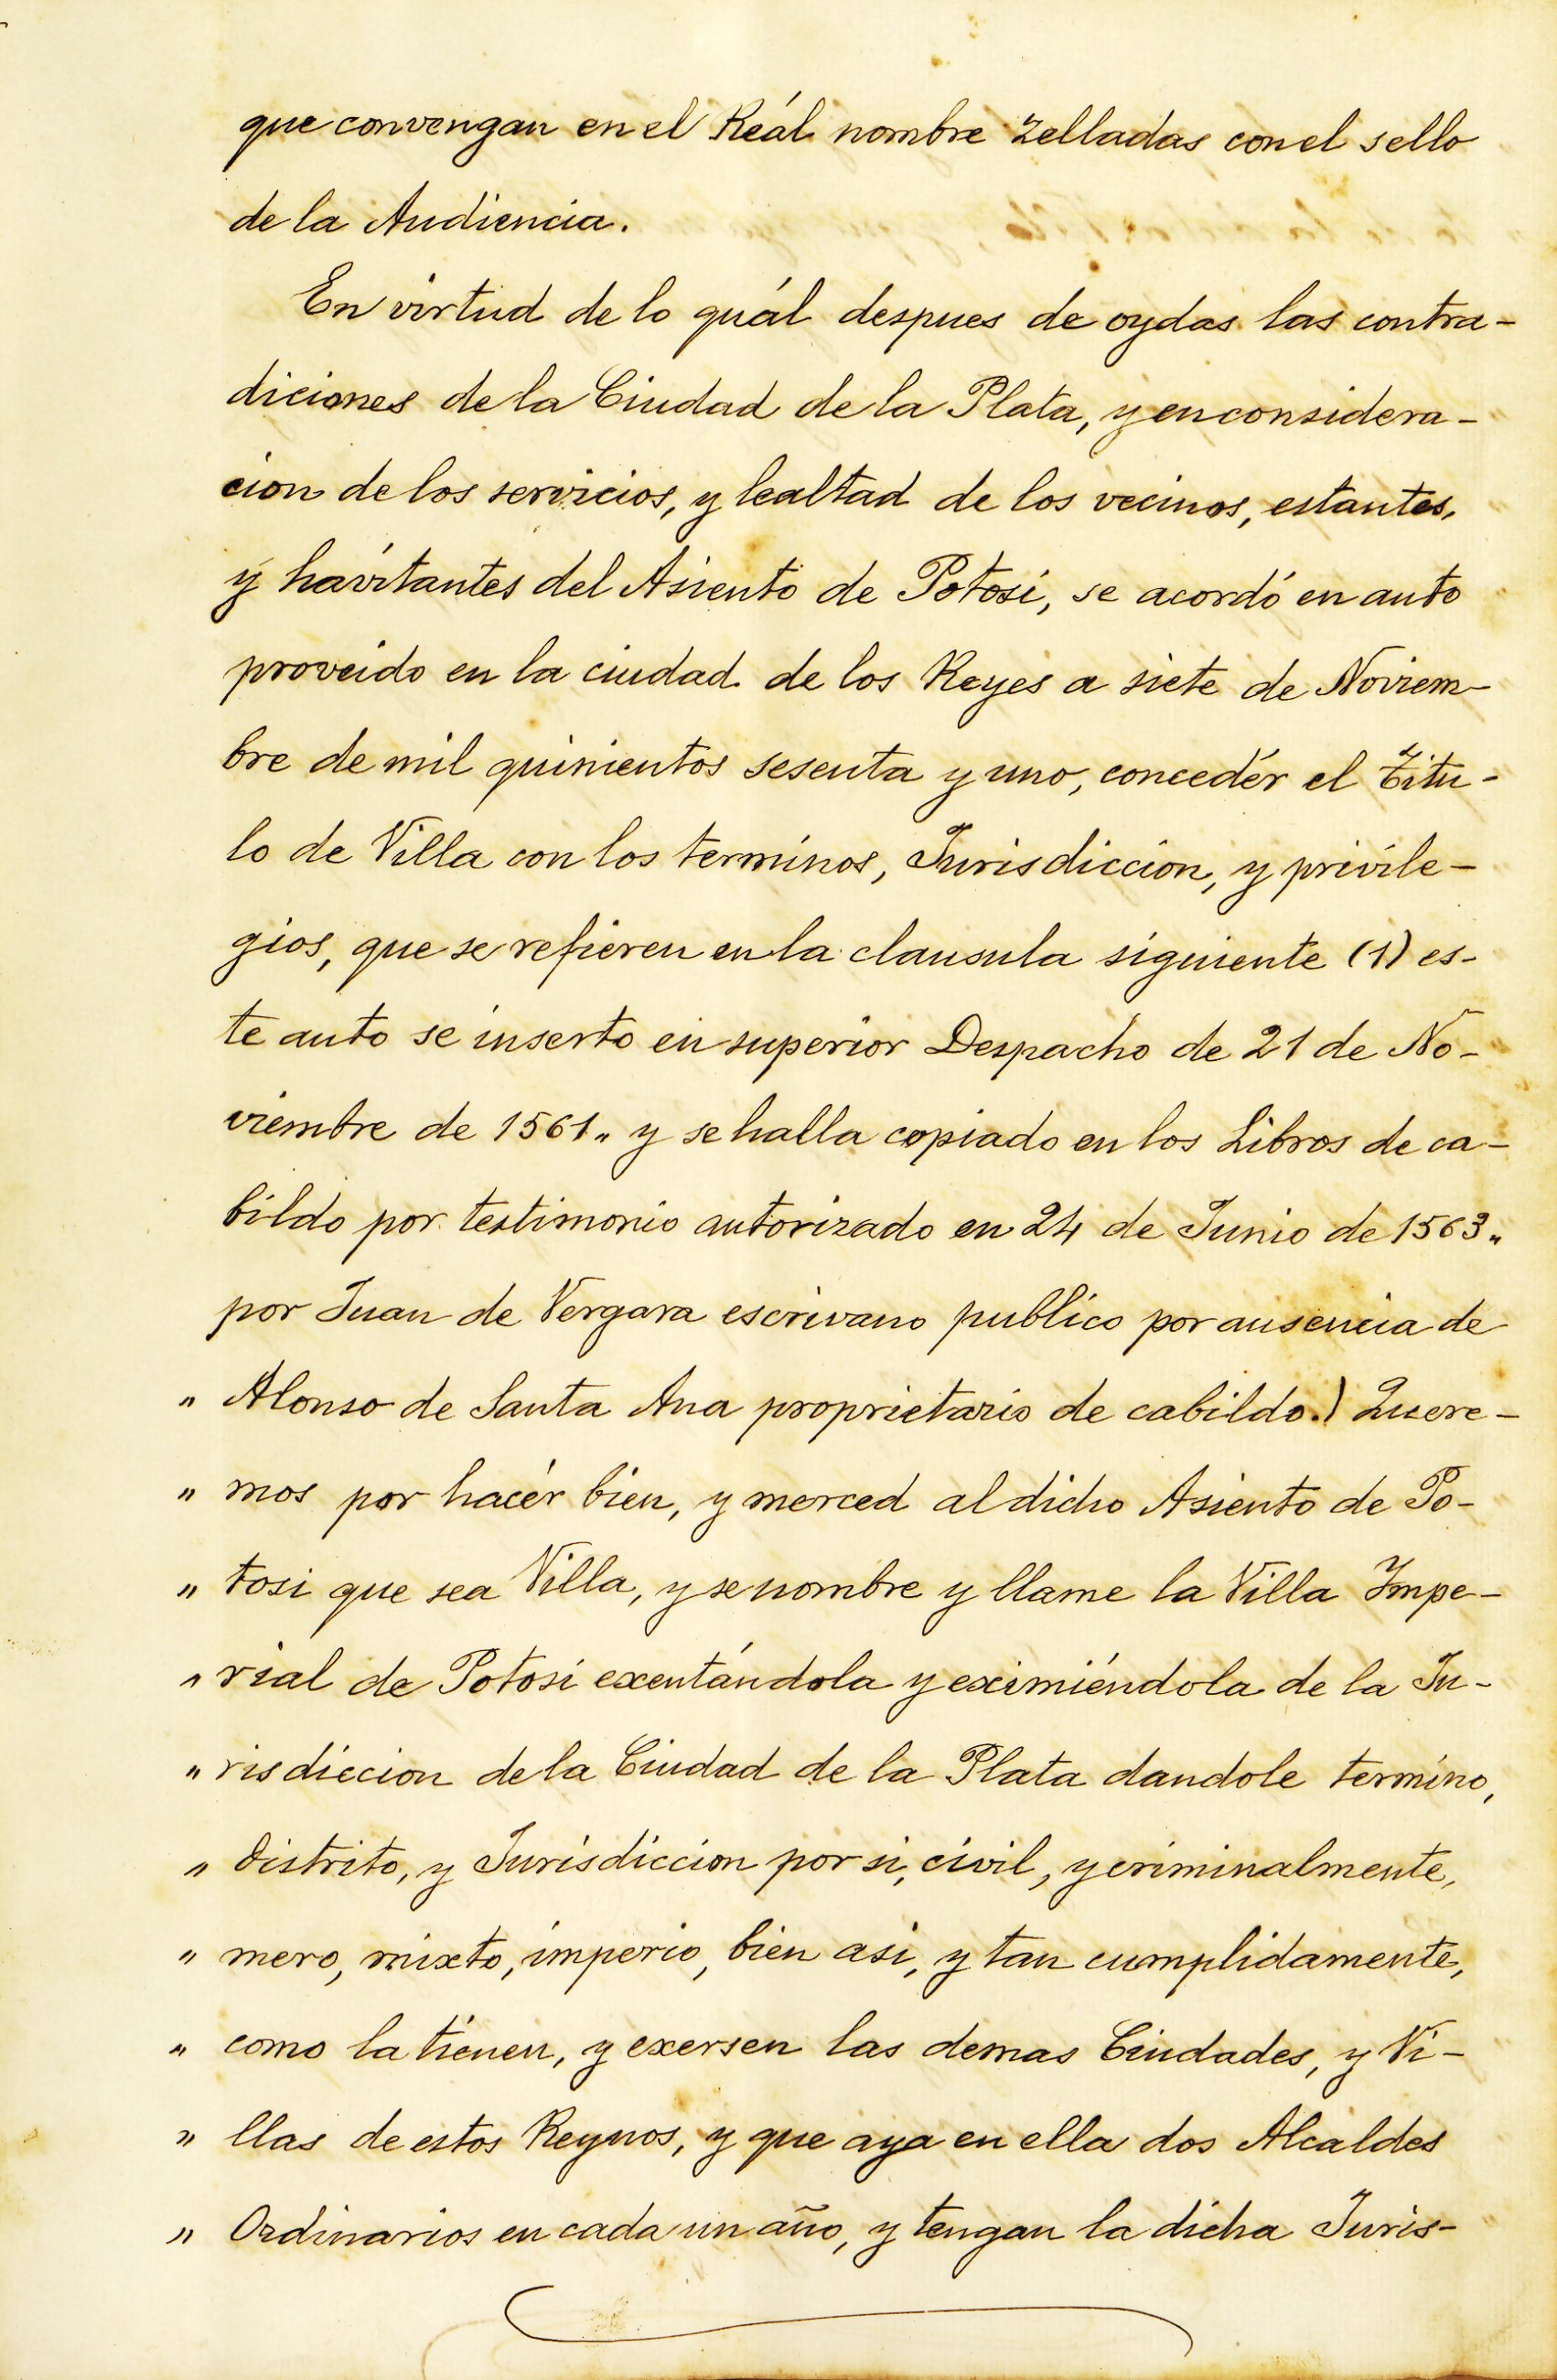 que convengan en el Reál nombre zelladas con el sello
de la Audiencia.
En virtud de lo quál despues de oydas las contra-
diciones de la Ciudad de la Plata, y en considera-
cion de los servicios, y lealtad de los vecinos, estantes,
y havitantes del Asiento de Potosi, se acordó en auto
proveido en la ciudad de los Reyes a siete de Noviem-
bre de mil quinientos sesenta y uno, concedér el Titu-
lo de Villa con los terminos, Jurisdiccion, y privile-
gios, que se refieren en la clausula siguiente (1) es-
te auto se inserto en superior Despacho de 21 de No-
viembre de 1561" y se halla copiado en los Libros de ca-
bildo por testimonio autorizado en 24 de Junio de 1563"
por Juan de Vergara escrivano publico por ausencia de
" Alonso de Santa Ana proprietario de cabildo.) Quere-
" mos por hacér bien, y merced al dicho Asiento de Po-
" tosi que sea Villa, y se nombre y llame la Villa Impe-
" rial de Potosi exentándola y eximiéndola de la Ju-
" risdiccion de la Ciudad de la Plata dandole termino,
" distrito, y Jurisdiccion por si, civil, y criminalmente,
" mero, mixto, imperio, bien asi, y tan cumplidamente,
" como la tienen, y exersen las demas Ciudades, y Vi-
" llas de estos Reynos, y que aya en ella dos Alcaldes
" Ordinarios en cada un año, y tengan la dicha Juris-